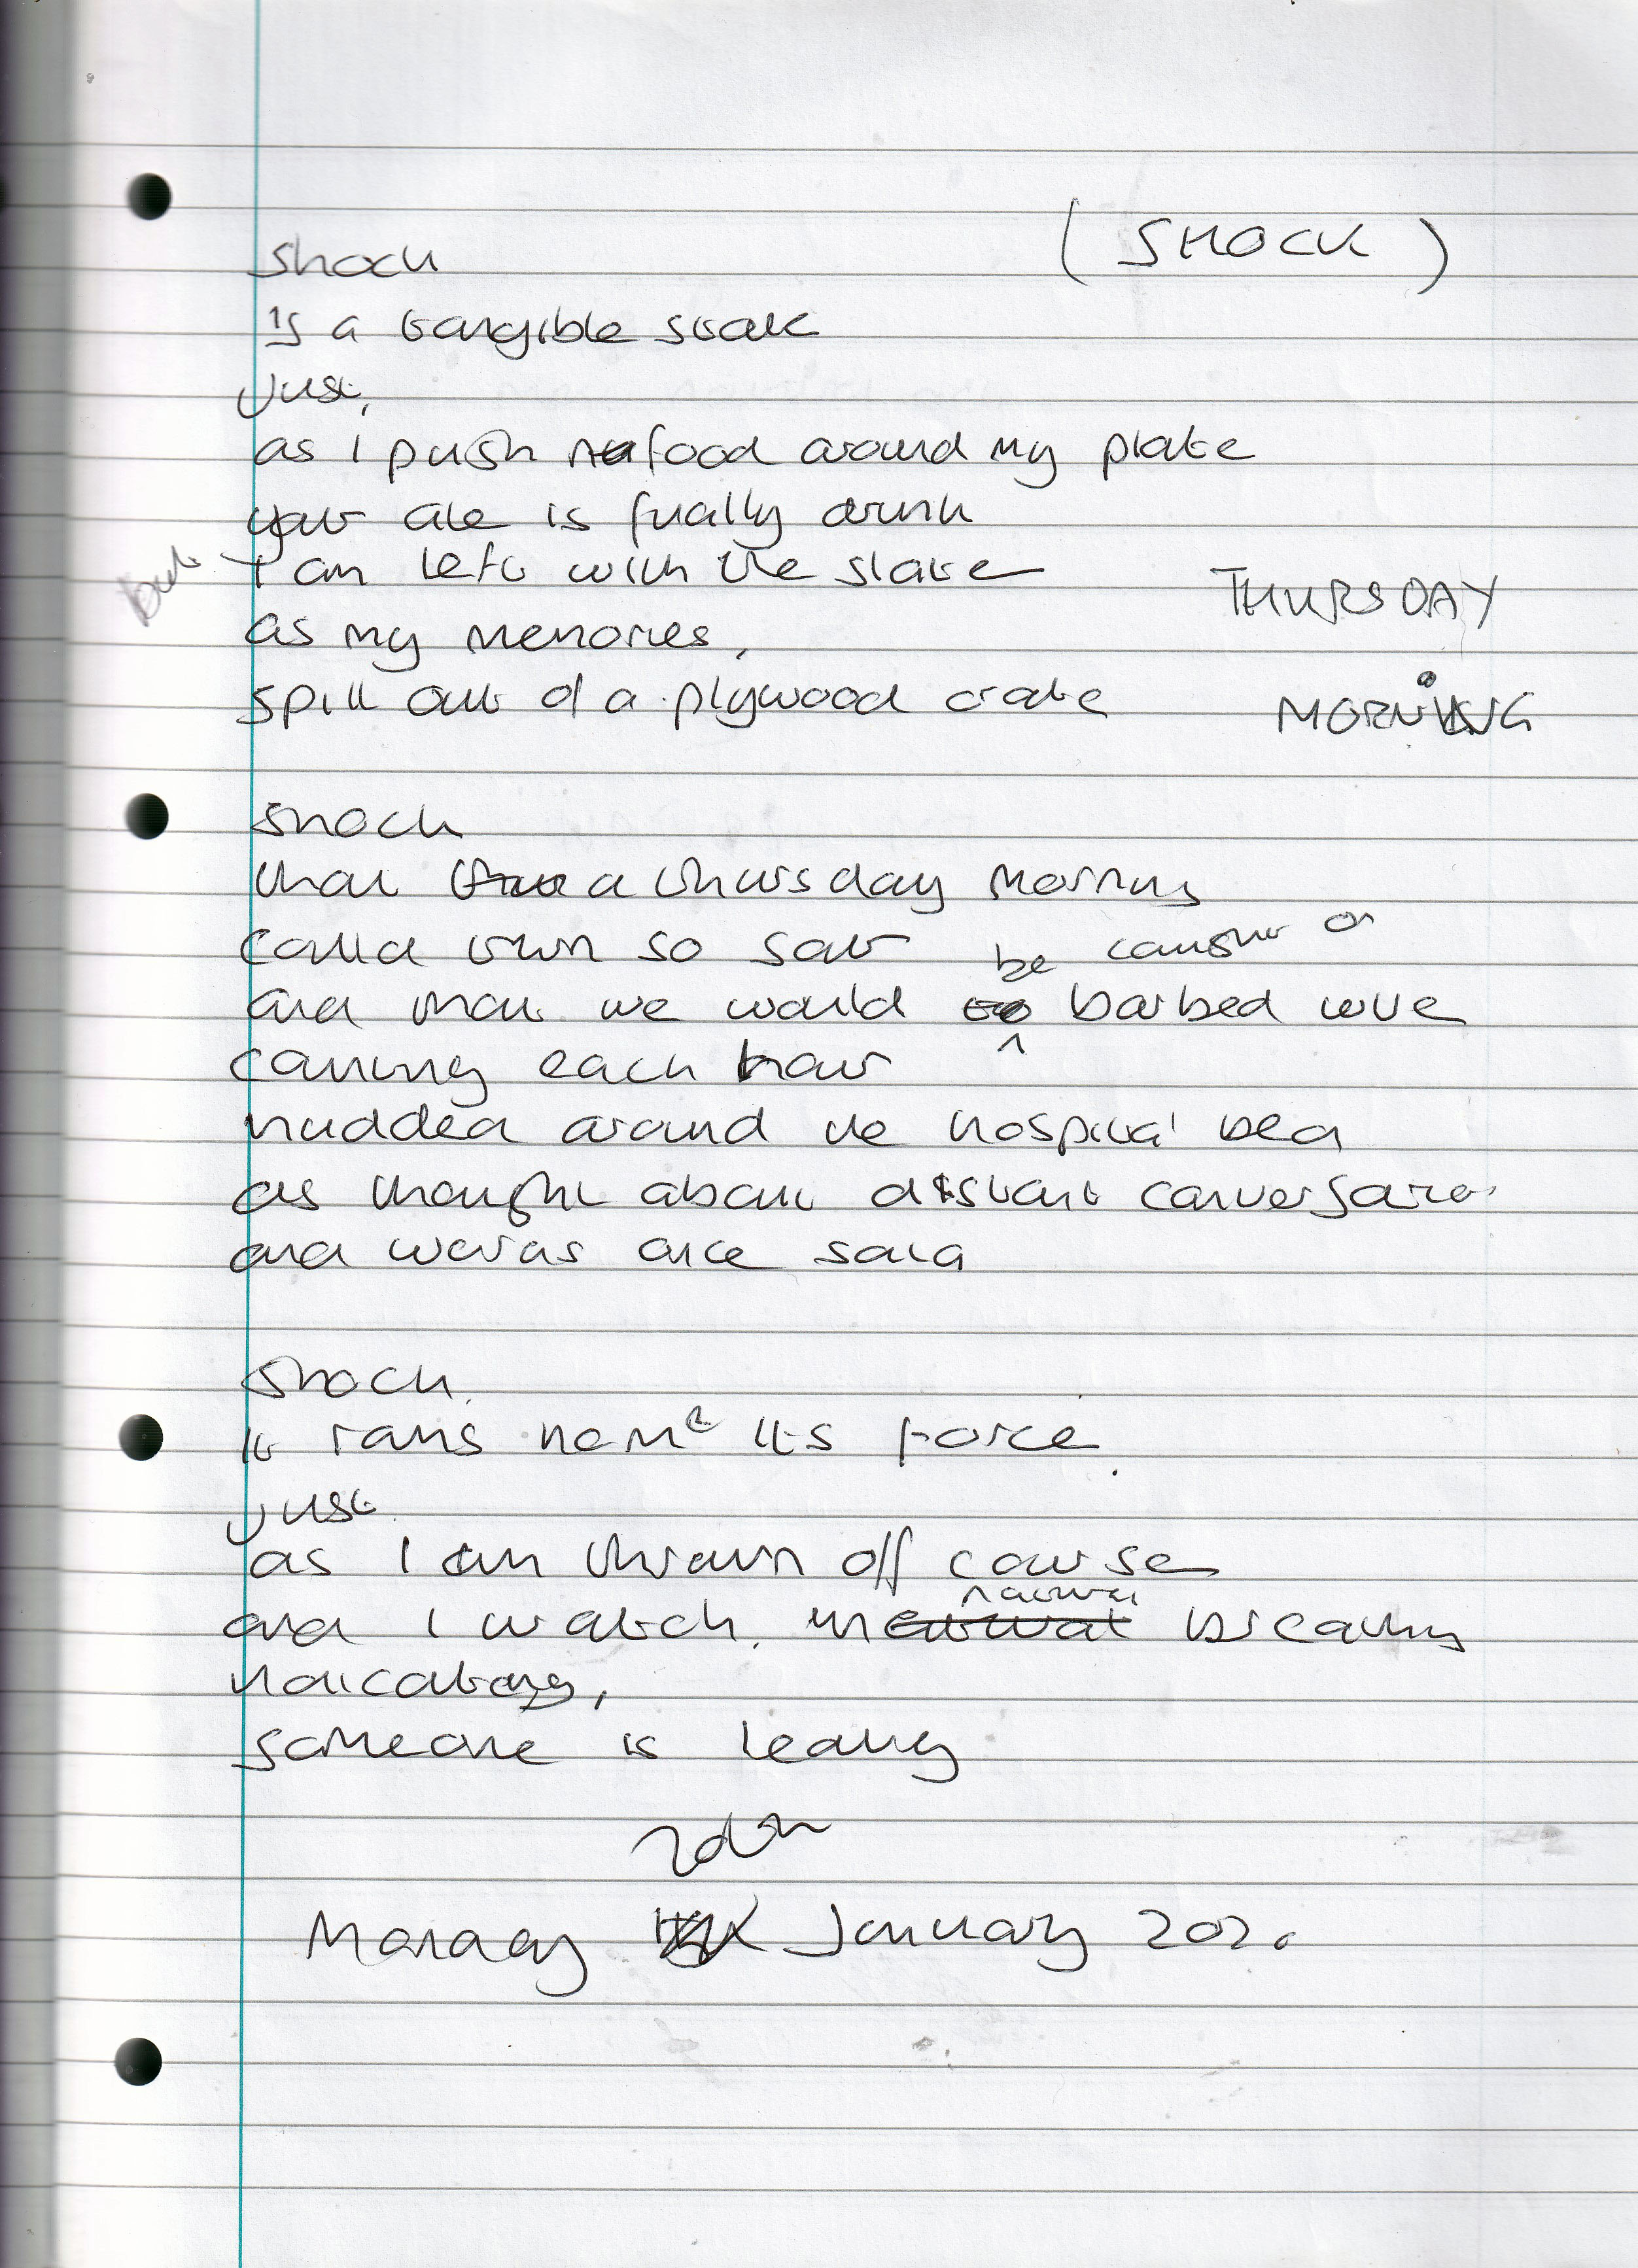 (SHOCK)
Shock
Is a tangible state
Just,
as I push food around my plate
your ale is finally drunk
but I am left with the slate
THURSDAY
as my memories,
spill out of a plywood crate
MORNING
Shock
that a thursday morning
could turn so sour
and that we would be caught on barbed wire
counting each hour
huddled around the hospital bed
as thought about distant conversation
and words once said
Shock.
It rams home its force.
Just
as I am thrown off course
and I watch, breathing
indicating,
someone is leaving
20th
Monday January 202.